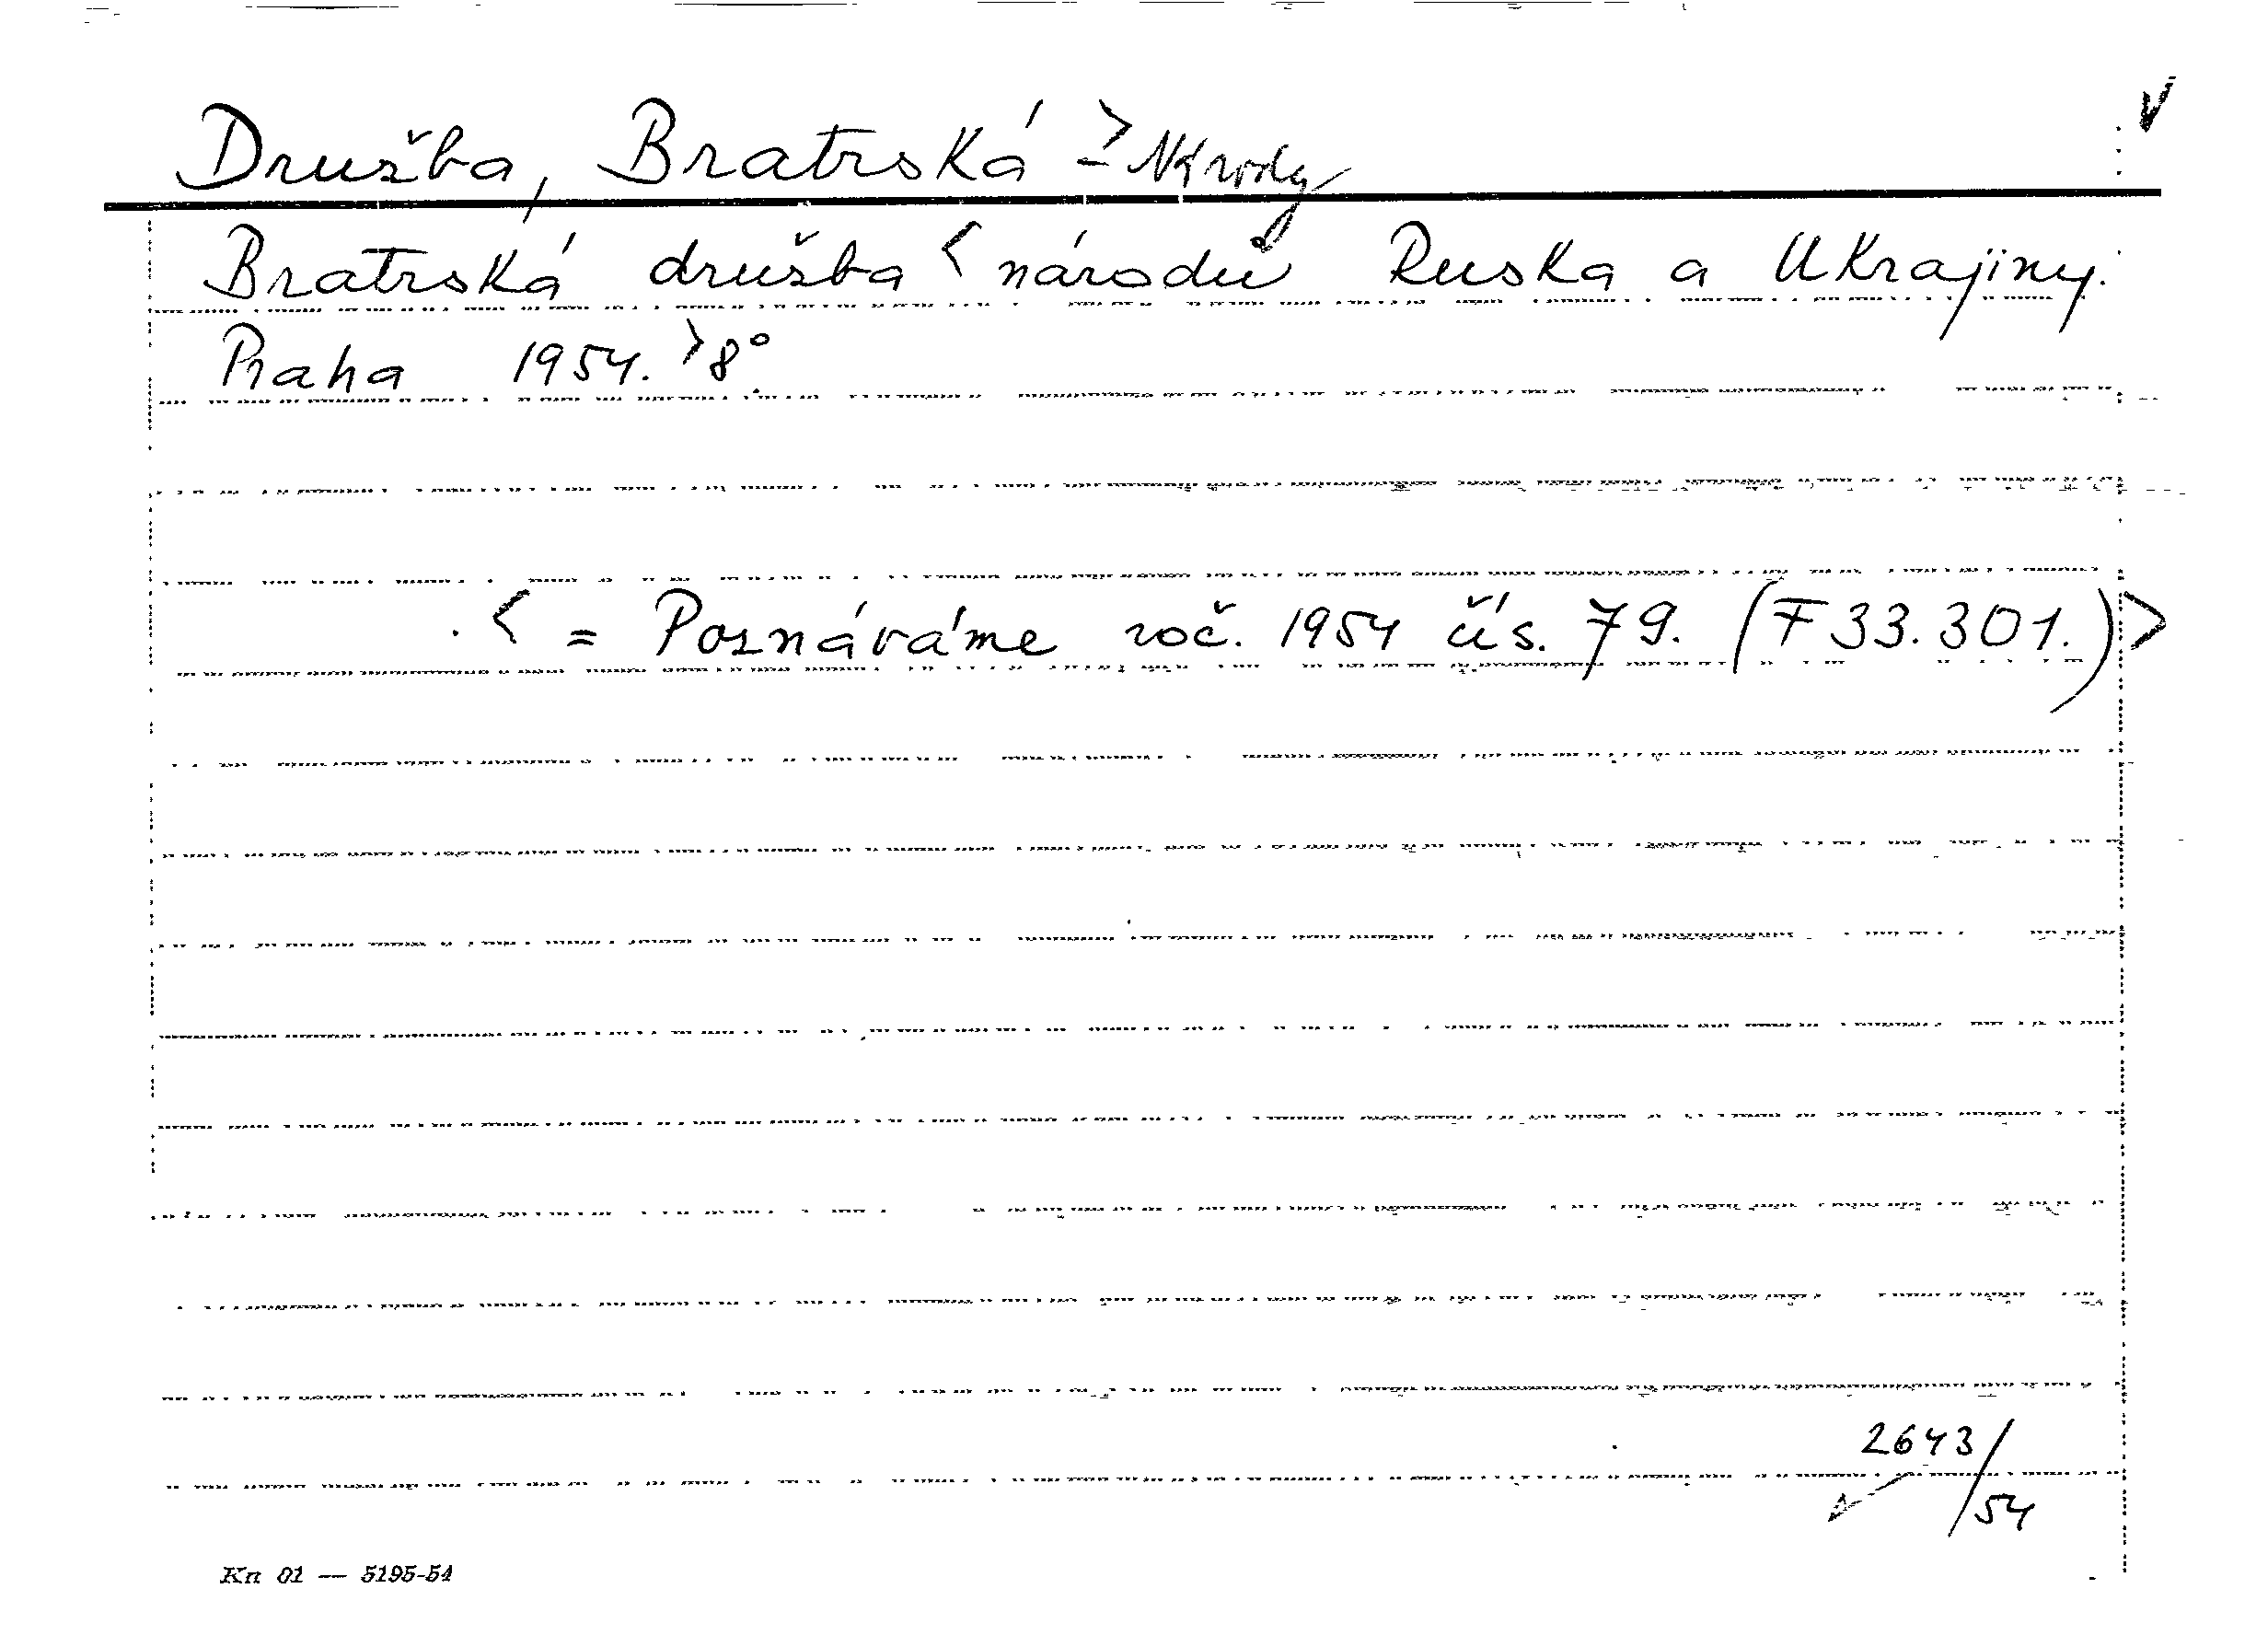 Družba, Bratrská > - Národy
Bratrská družba < národů Ruska a Ukrajiny.
Praha 1954. > 8°
. < = Poznáváme roč. 1954 čís. 79. (F 33.301.) >
2643/
54
Kn 01 — 5195-54